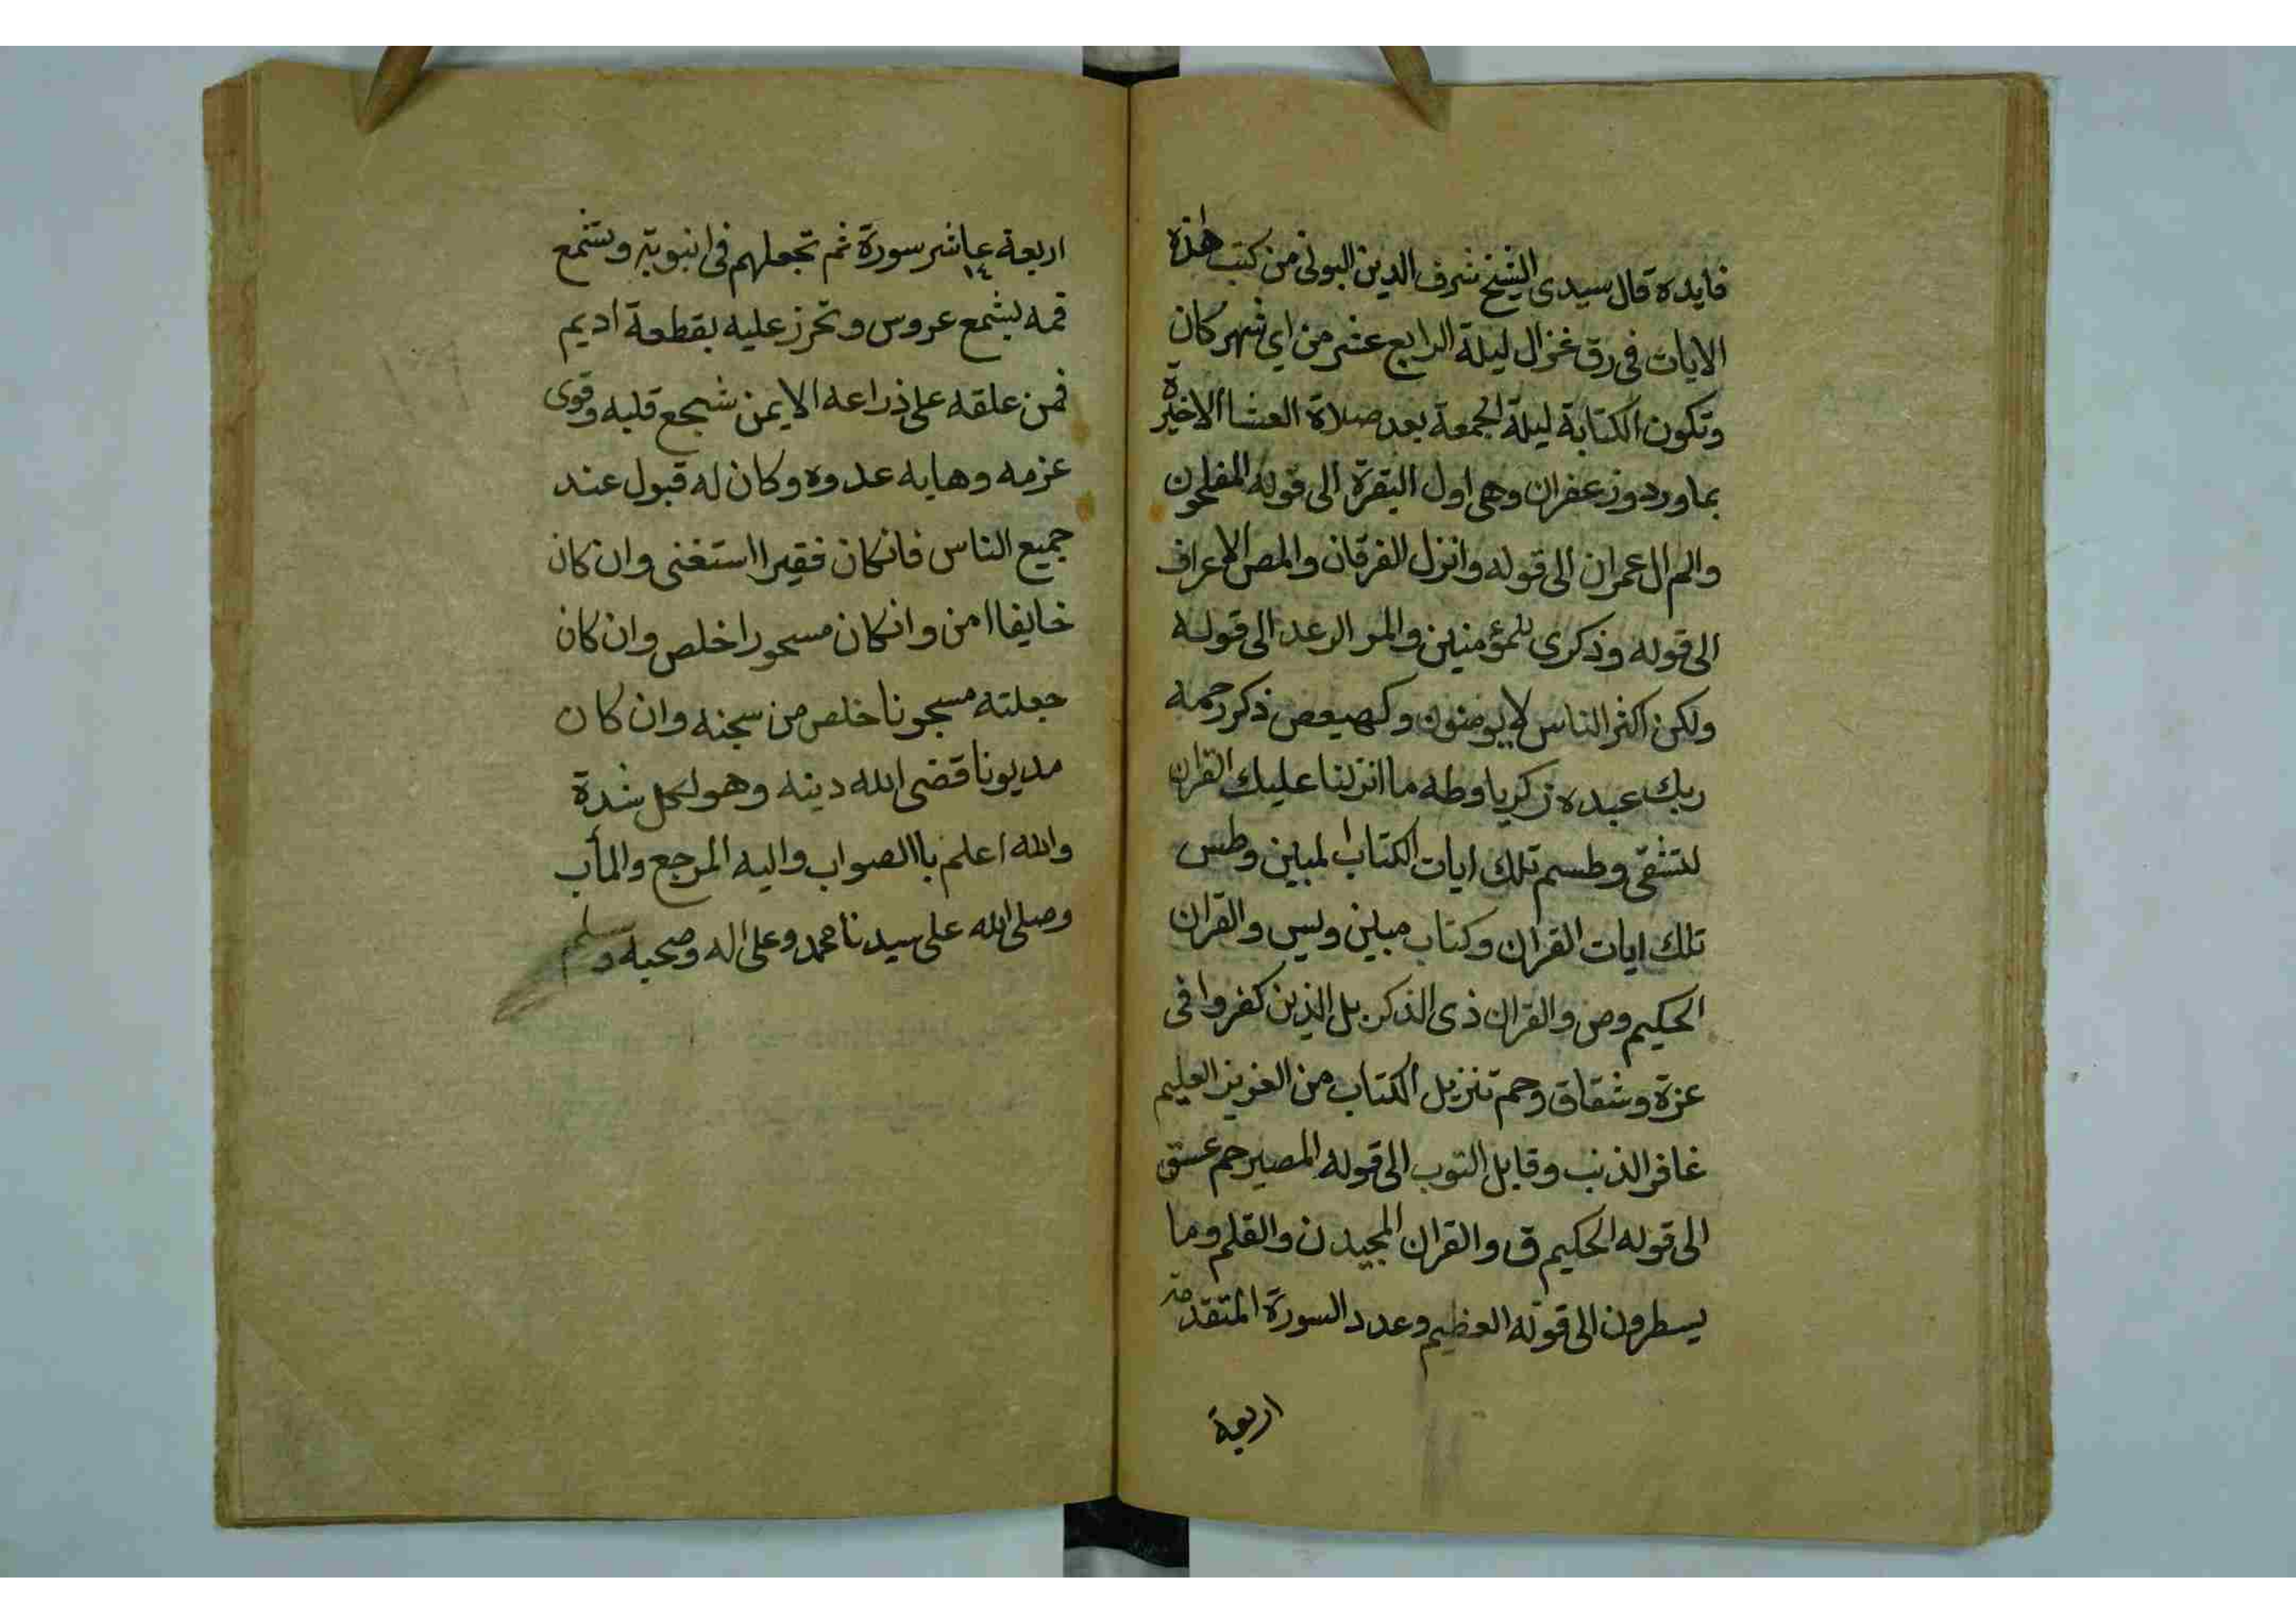 فايدة قال سيدى الشيخ شرف الدين البونى من كتب هذة
الايات فى رق غزال ليلة الرابع عشر من اي شهر كان
وتكون الكتابة ليلة الجمعة بعد صلاة العشا الاخيرة
بماورد وزعفران وهى اول البقرة الى قوله المفلحون
والم ال عمران الى قوله وانزل الفرقان والمص الاعراف
الى قوله وذكرى للمؤمنين والمر الرعد الى قوله
ولكن اكثر الناس لا يومنون وكهيعص ذكر رحمة
ربك عبده زكريا وطه ما انزلنا عليك القران
لتشقى وطسم تلك ايات الكتاب المبين وطس
تلك ايات القران وكتاب مبين ويس والقران
الحكيم وص والقران ذى الذكر بل الذين كفروا فى
عزة وشقاق وحم تنزيل الكتاب من العزيز العليم
غافر الذنب وقابل التوب الى قوله المصير حم عسق
الى قوله الحكيم ق والقران المجيد ن والقلم وما
يسطرون الى قوله العظيم وعدد السورة المتقدمة
اربعة
اربعة عاشر سورة ثم تجعلهم فى انبوبة وتشمع
١٤
فمه بشمع عروس وتخرز عليه بقطعة اديم
فمن علقه على ذراعه الايمن شجع قلبه وقوى
عزمه وهابه عدوه وكان له قبول عند
جميع الناس فانكان فقيرا استغنى وان كان
خايفا امن وانكان مسحورا خلص وان كان
جعلته مسجونا خلص من سجنه وان كان
مديونا قضى الله دينه وهو لكل شدة
والله اعلم باالصواب واليه المرجع والمأب
وصلى الله على سيدنا محمد وعلى اله وصحبه وسلم